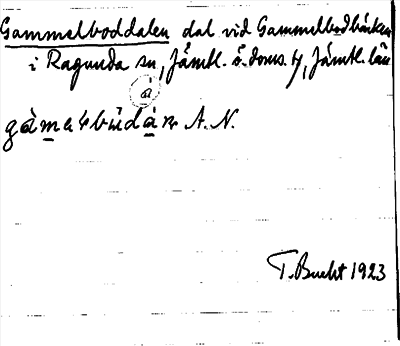 Gammelboddalen dal vid Gammelbodbäcken
i Ragunda sn, Jämtl. ö. doms. tg, Jämtl. län
a
A. N.
T. Bucht 1923